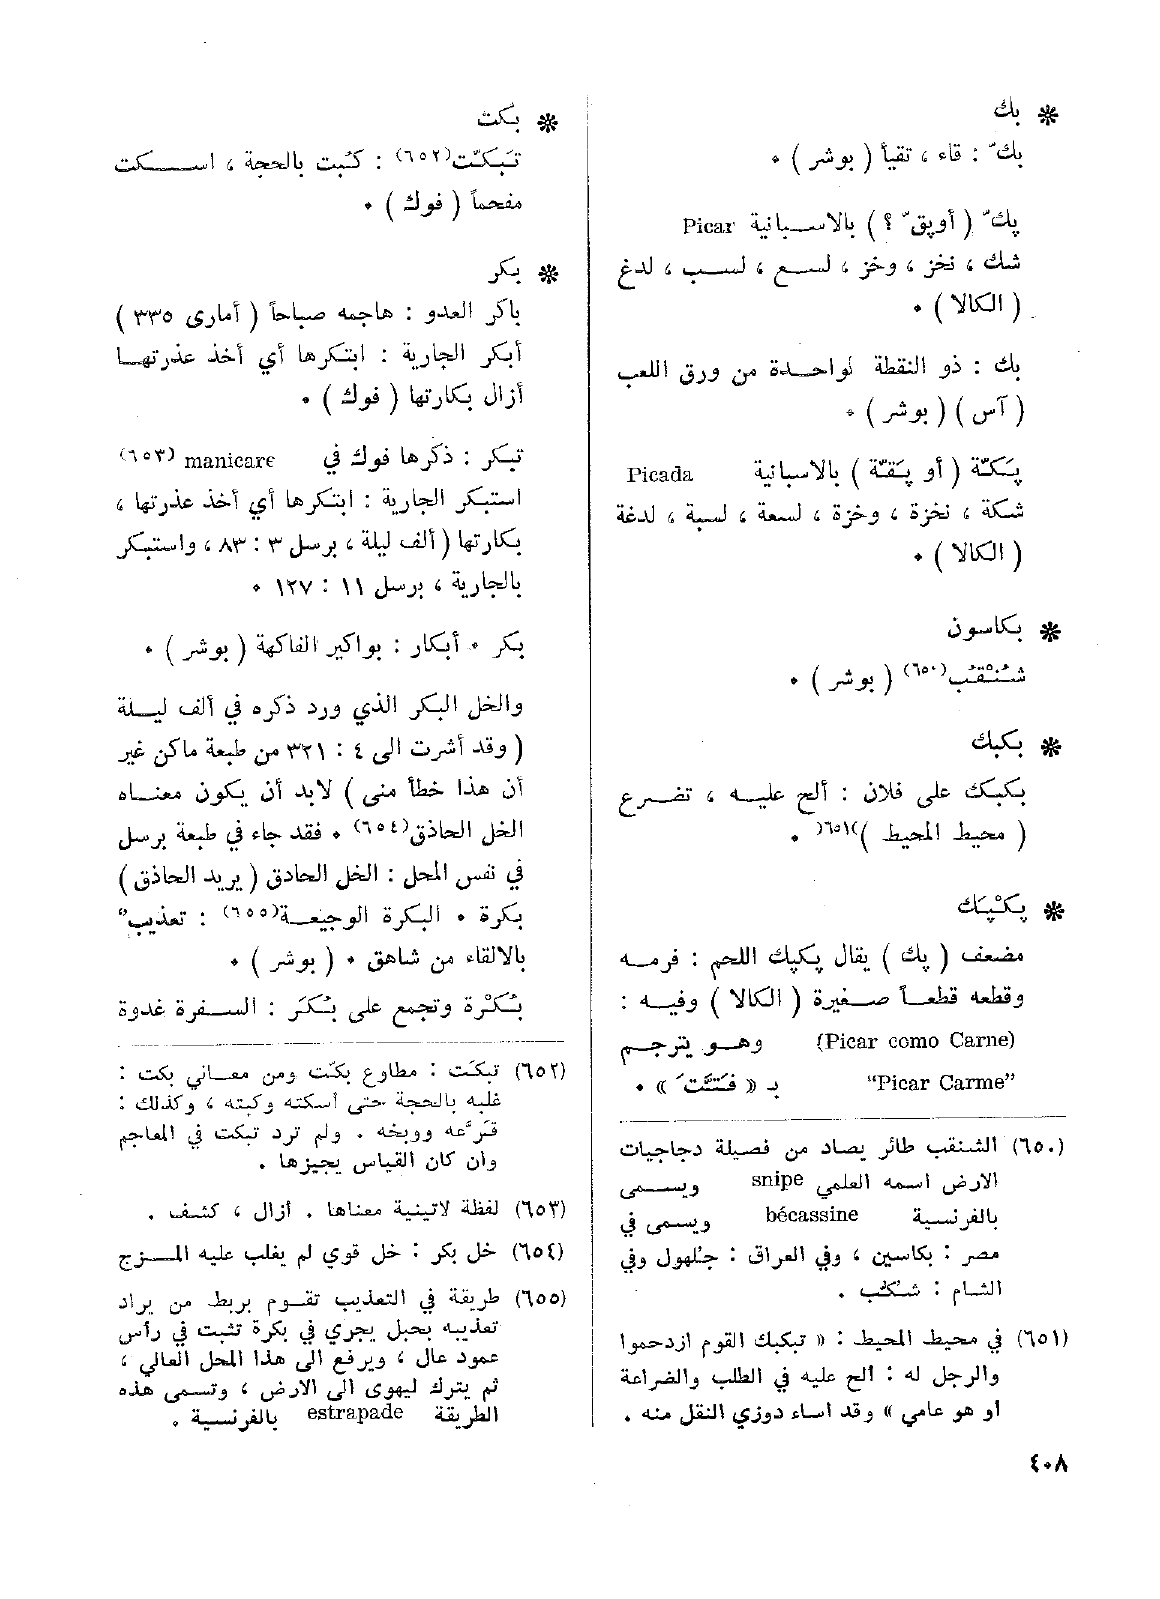 ❋ بك
بكّ : قاء ، تقيأ ( بوشر ) ٠
پكّ ( أوپقّ ؟ ) بالاسبانية Picar
شك ، نخز ، وخز ، لسع ، لسب ، لدغ
( الكالا ) ٠
بك : ذو النقطة لواحدة من ورق اللعب
( آس ) ( بوشر ) ٠
پَكّة ( أو پَقّة ) بالاسبانية Picada
شكة ، نخزة ، وخزة ، لسعة ، لسبة ، لدغة
( الكالا ) ٠
❋ بكاسون
شنقب(٦٥٠) ( بوشر ) ٠
❋ بكبك
بكبك على فلان : ألح عليه ، تضرع
( محيط المحيط )(٦٥١) ٠
❋ پكْپَك
مضعف ( پك ) يقال پكپك اللحم : فرمه
وقطعه قطعاً صغيرة ( الكالا ) وفيه :
(Picar como Carne) وهو يترجم
“Picar Carme” بـ « فَتَّتَ » ٠
(٦٥٠) الشنقب طائر يصاد من فصيلة دجاجيات
الارض اسمه العلمي snipe ويسمى
بالفرنسية bécassine ويسمى في
مصر : بكاسين ، وفي العراق : جلهول وفي
الشام : شكب .
(٦٥١) في محيط المحيط : « تبكبك القوم ازدحموا
والرجل له : الح عليه في الطلب والضراعة
او هو عامي » وقد اساء دوزي النقل منه .
٤٠٨
❋ بكت
تَبَكّت(٦٥٢) : كُبت بالحجة ، اسكت
مفحماً ( فوك ) ٠
❋ بكر
باكر العدو : هاجمه صباحاً ( أماري ٣٣٥ )
أبكر الجارية : ابتكرها أي أخذ عذرتها
أزال بكارتها ( فوك ) ٠
تبكر : ذكرها فوك في manicare (٦٥٣)
استبكر الجارية : ابتكرها أي أخذ عذرتها ،
بكارتها ( ألف ليلة ، برسل ٣ : ٨٣ ، واستبكر
بالجارية ، برسل ١١ : ١٢٧ ٠
بكر ٠ أبكار : بواكير الفاكهة ( بوشر ) ٠
والخل البكر الذي ورد ذكره في ألف ليلة
( وقد أشرت الى ٤ : ٣٢١ من طبعة ماكن غير
أن هذا خطأ منى ) لابد أن يكون معناه
الخل الحاذق(٦٥٤) ٠ فقد جاء في طبعة برسل
في نفس المحل : الخل الحادق ( يريد الحاذق )
بكرة ٠ البكرة الوجيعة(٦٥٥) : تعذيب
بالالقاء من شاهق ٠ ( بوشر ) ٠
بُكْرة وتجمع على بُكَر : السفرة غدوة
(٦٥٢) تبكت : مطاوع بكّت ومن معاني بكت :
غلبه بالحجة حتى أسكته وكبته ، وكذلك :
قرَّعه ووبخه . ولم ترد تبكت في المعاجم
وان كان القياس يجيزها .
(٦٥٣) لفظة لاتينية معناها . أزال ، كشف .
(٦٥٤) خل بكر : خل قوي لم يغلب عليه المزج
(٦٥٥) طريقة في التعذيب تقوم بربط من يراد
تعذيبه بحبل يجري في بكرة تثبت في رأس
عمود عال ، ويرفع الى هذا المحل العالي ،
ثم يترك ليهوى الى الارض ، وتسمى هذه
الطريقة estrapade بالفرنسية .